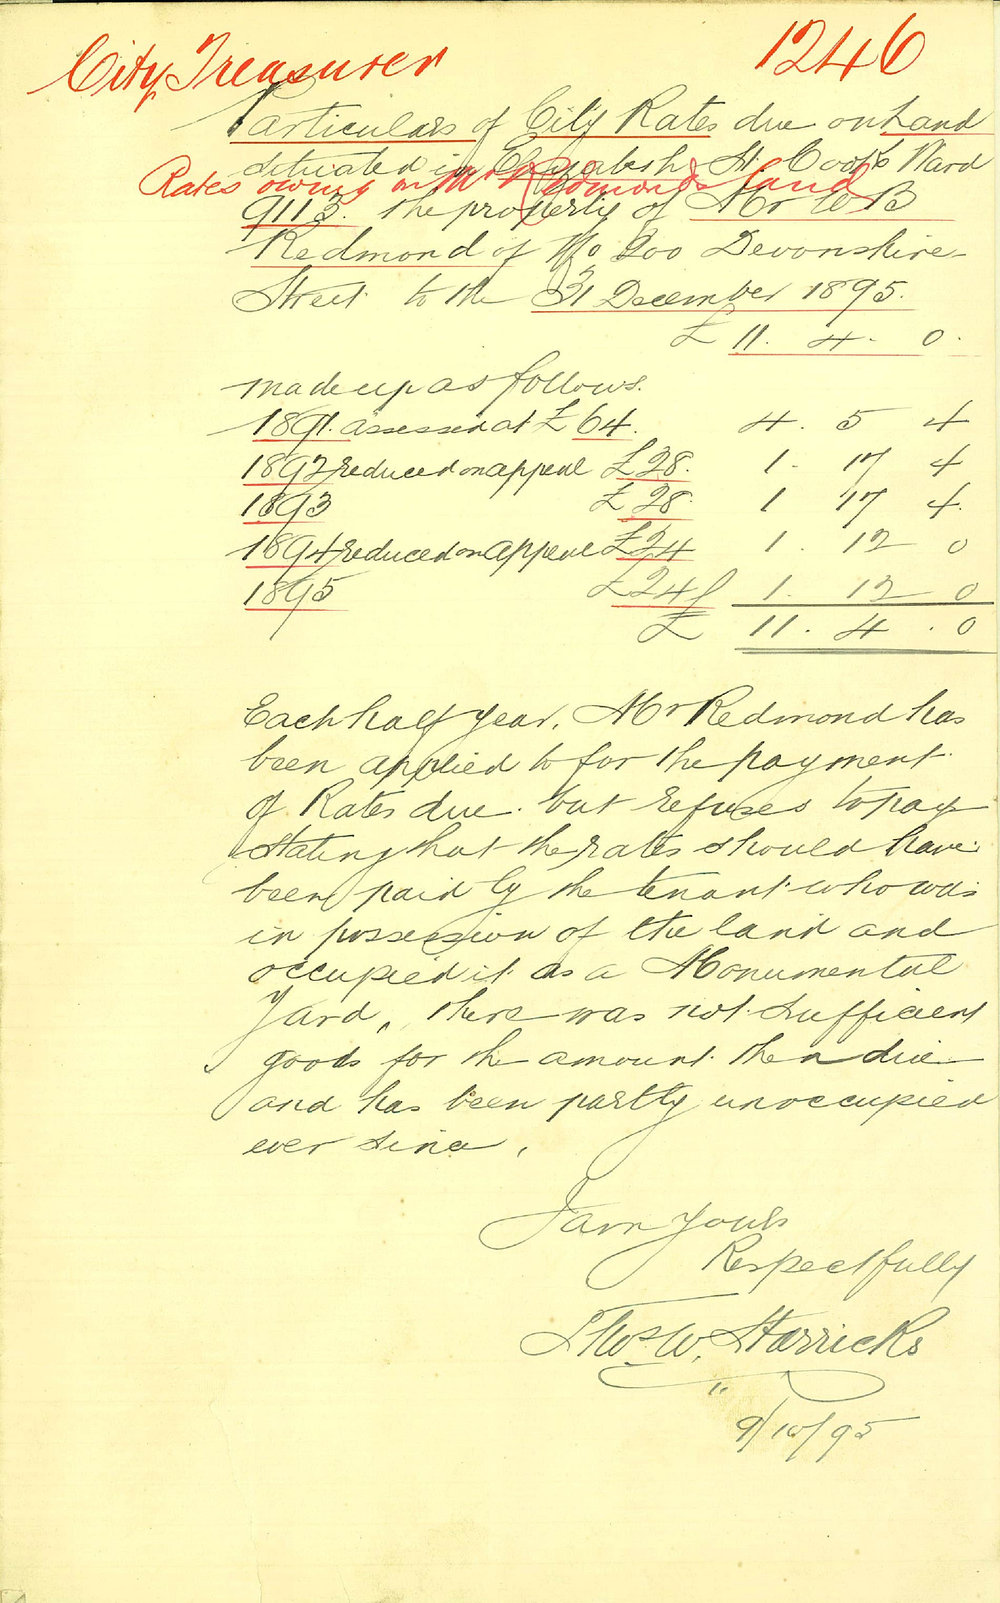 City Treasurer 1246
Particulars of City Rates due on Land
situated in Elizabeth St. Cook's Ward
Rates owing on Mr Redmond's land
9113. the property of Mr W B
Redmond of No 200 Devonshire
Street to the 31 December 1895.
£ 11. 4. 0.
made up as follows.
1891. assessed at £ 64. 4. 5 4
1892 reduced on appeal £ 28. 1. 17 4
1893 £ 28. 1 17 4.
1894 reduced on appeal £24 1. 12 0
1895 £24 1. 12 0
£ 11. 4. 0
Each half year, Mr Redmond has
been applied to for the payment
of Rates due. but refuses to pay
stating that the rates should have
been paid by the tenant who was
in possession of the land and
occupied it as a Monumental
Yard, there was not sufficient
goods for the amount then due
and has been partly unoccupied
ever since,
I am yours
Respectfully
Thos W.
9/10/95